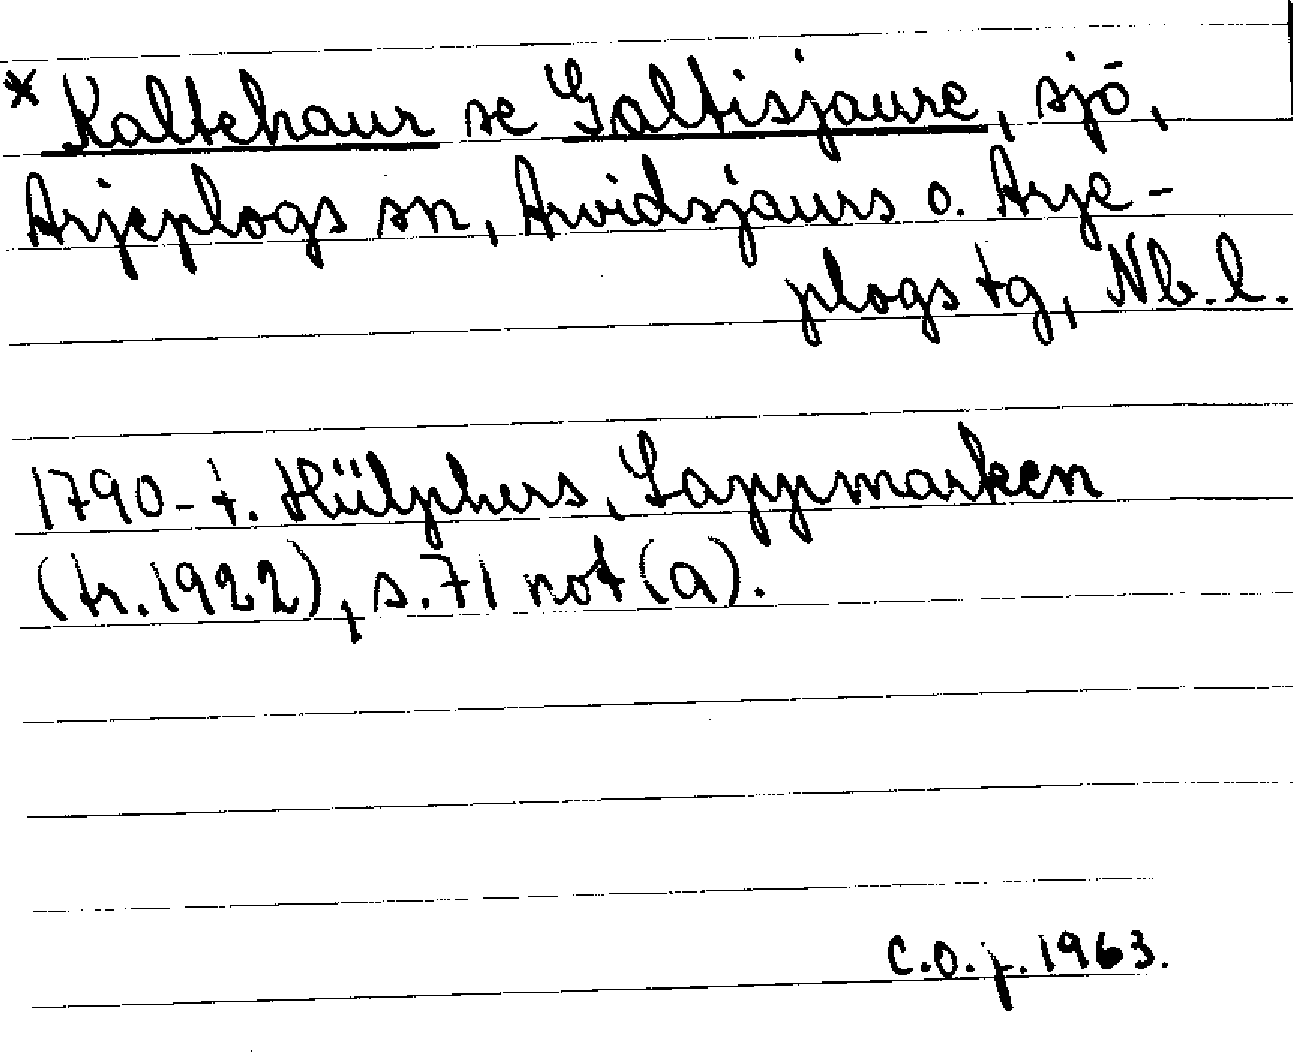 * Kaltehaur se Galtisjaure, sjö,
Arjeplogs sn, Arvidsjaurs o. Arje-
plogs tg, Nb. l.
1790-t. Hülphers, Lappmarken
(tr. 1922), s. 71 not (a).
C.O.f. 1963.